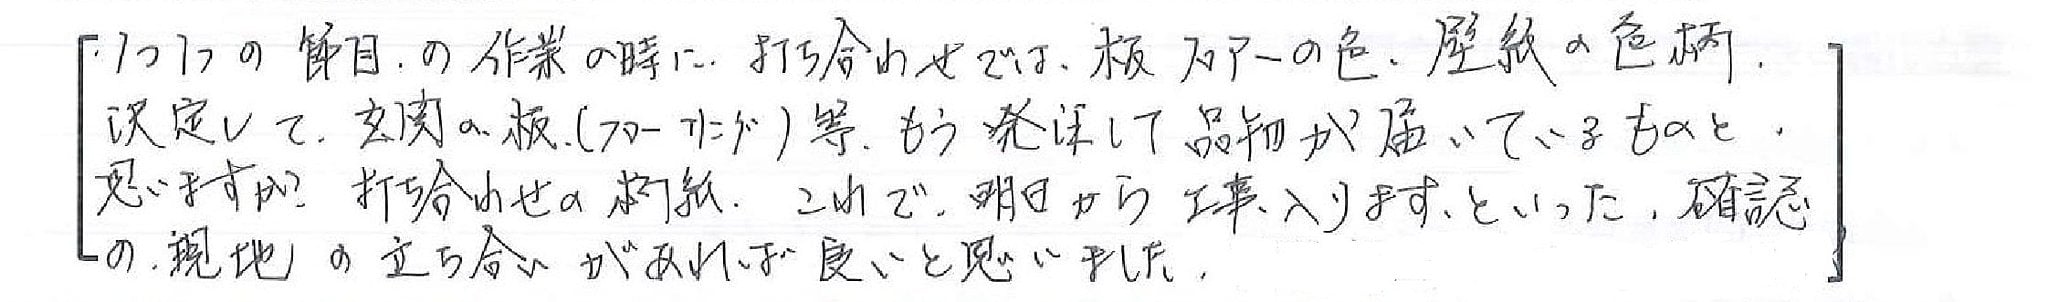 [・1つ1つの節目.の作業の時に.打ち合わせでは、板フロアーの色、壁紙の色柄.
決定して、玄関の板.(フローリング)等.もう発注して品物が届いているものと.
思いますが? 打ち合わせの 紙. これで.明日から工事、入ります、といった.確認
の.現地の立ち合いがあれば良いと思いました.]